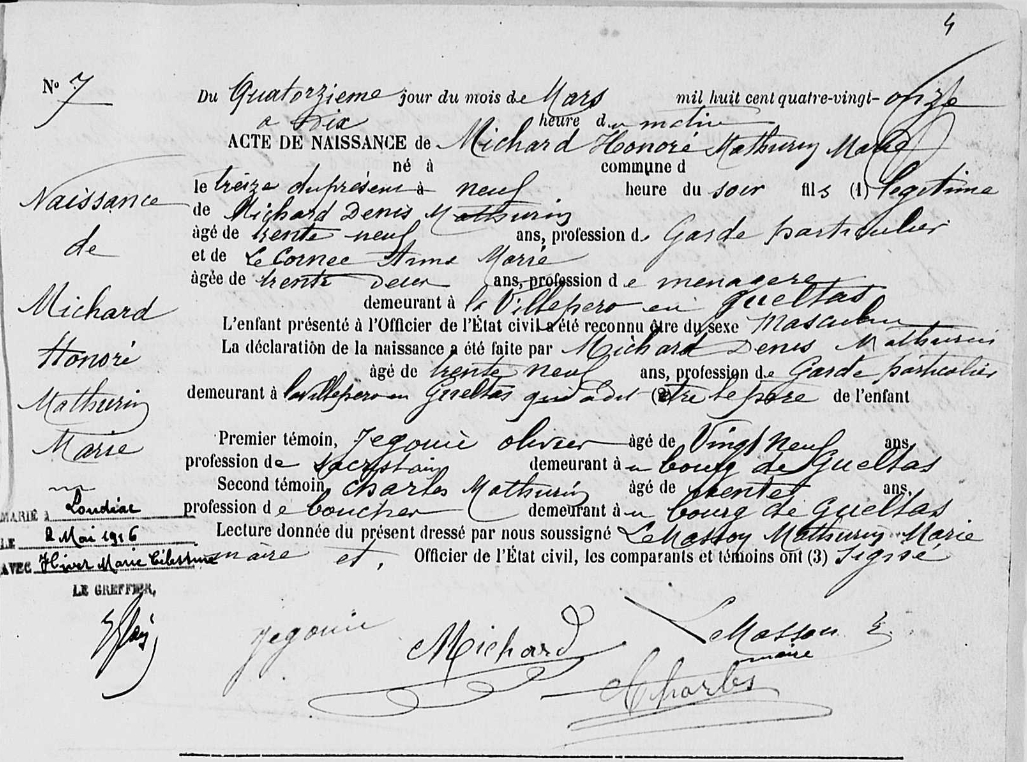 4
N° 7
Du Quatorzieme jour du mois de Mars mil huit cent quatre-vingt-onze
a Dix heure du matin
ACTE DE NAISSANCE de Michard Honoré Mathurin Marie
né à commune d
le treize du présent à neuf heure du soir fils (1) légitime
de Michard Denis Mathurin
âgé de trente neuf ans, profession de Garde particulier
et de Le Cornec Anne Marie
âgée de trente Deux ans, profession de menagere
demeurant à la Villepero en gueltas
L'enfant présenté à l'Officier de l'État civil a été reconnu être du sexe Masculin
La déclaration de la naissance a été faite par Michard Denis Mathurin
âgé de trente neuf ans, profession de Garde particulier
demeurant à la Villepero en Gueltas qui a dit (2) être le père de l'enfant
Premier témoin, Jegouic olivier âgé de Vingt Neuf ans,
profession de sacristain demeurant à u bourg de Gueltas
Second témoin, Charles Mathurin âgé de trente ans,
profession de boucher demeurant à u bourg de Gueltas
Lecture donnée du présent dressé par nous soussigné Le Masson Mathurin Marie
maire et, Officier de l'État civil, les comparants et témoins ont (3) signé
Naissance
de
Michard
Honoré
Mathurin
Marie
MARIÉ A Loudéac
LE 2 Mai 1916
AVEC Hiver Marie Célestine
LE GREFFIER,
Jegouic
Michard
Le Masson
maire
Charles